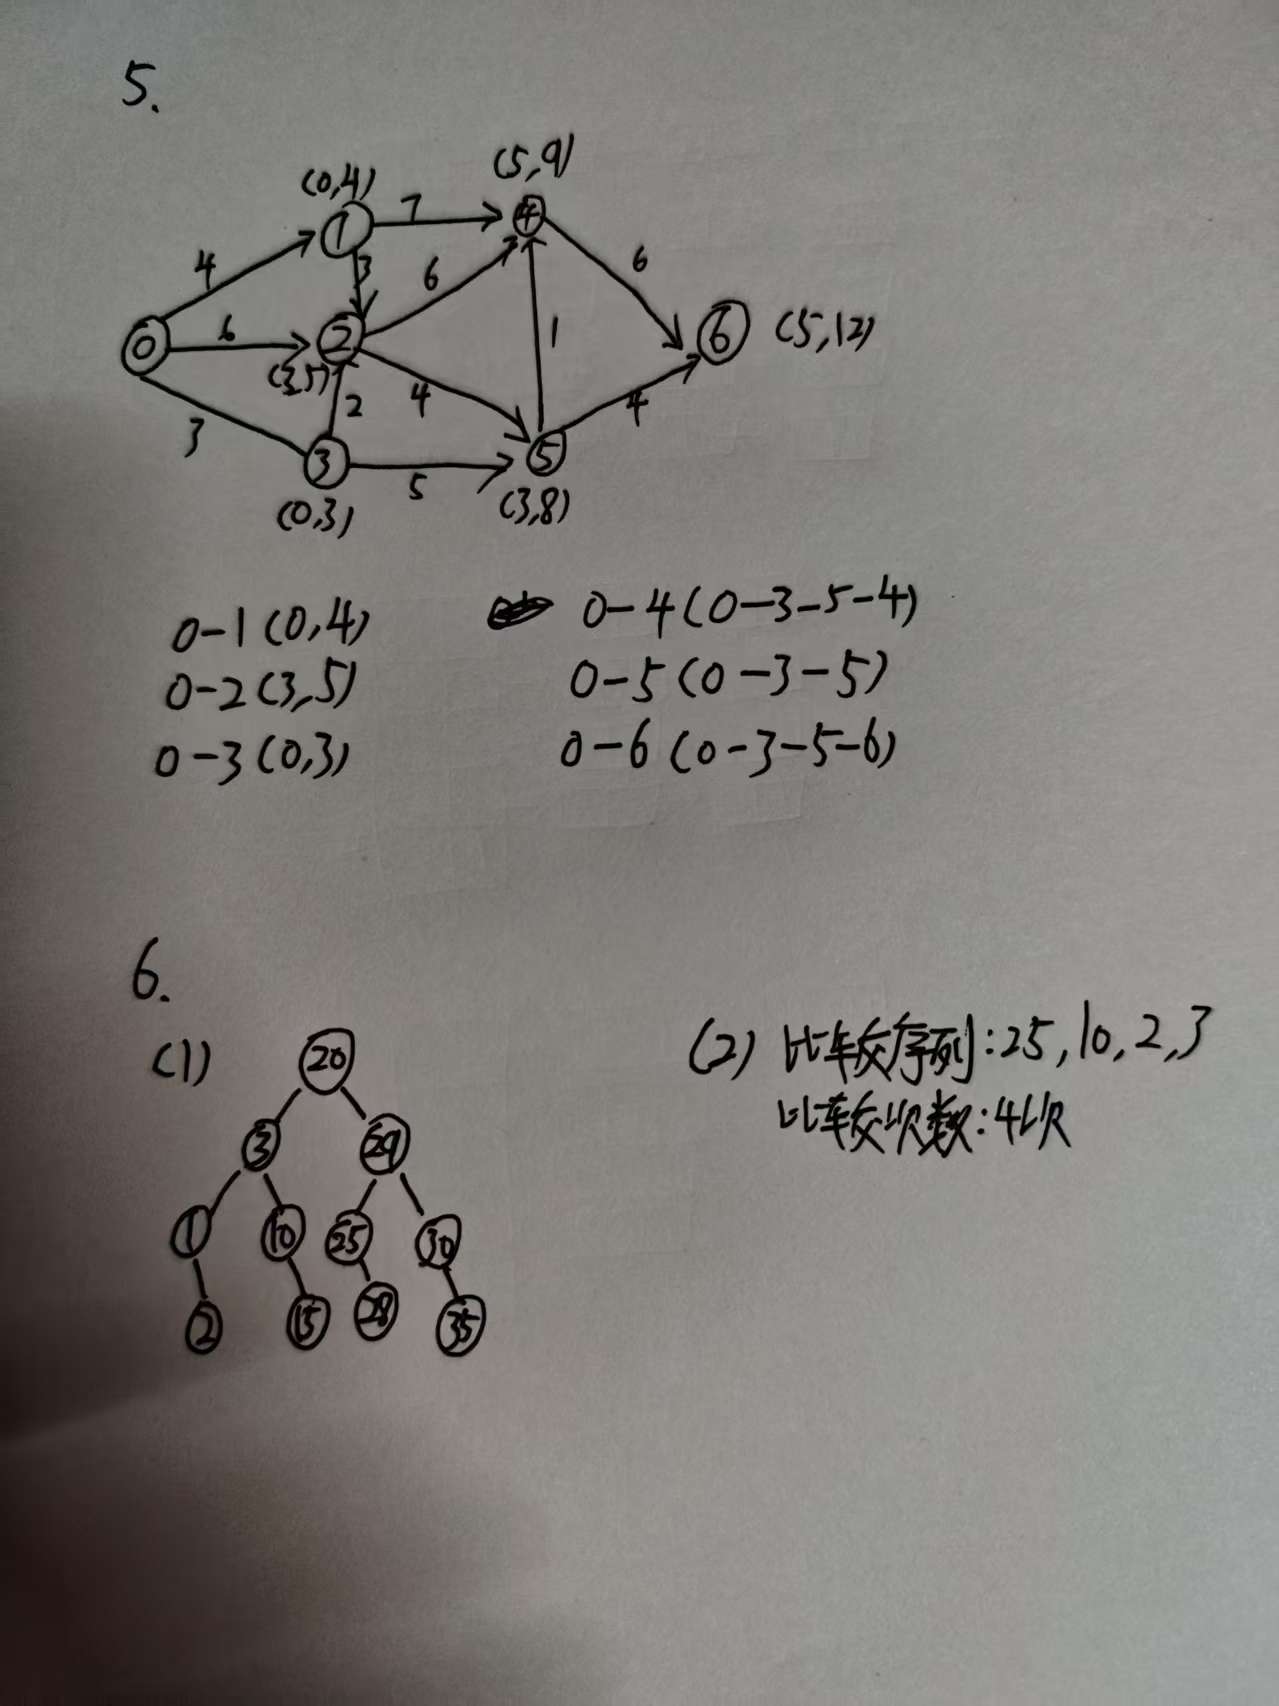 5.
(0,4)
(5,9)
1
7
4
4
3
6
6
0
6
2
6
(5,12)
(3,5)
1
3
2
4
4
3
5
5
(0,3)
(3,8)
0-1(0,4)
0-4(0-3-5-4)
0-2(3,5)
0-5(0-3-5)
0-3(0,3)
0-6(0-3-5-6)
6.
(1)
20
(2) 比较序列:25,10,2,3
比较次数:4次
3
29
1
10
25
30
2
15
28
35